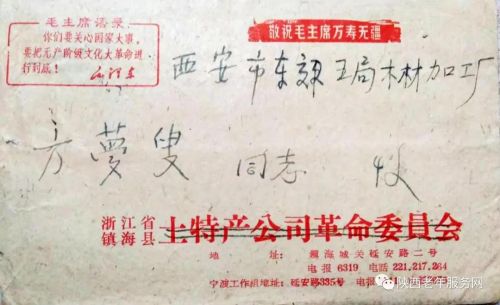 毛主席语录
你们要关心国家大事，
要把无产阶级文化大革命进
行到底！
毛泽东
敬祝毛主席万寿无疆
西安市东郊五局木材加工厂
方梦叟 同志 收
浙江省
镇海县 土特产公司革命委員会
地 址： 镇海城关延安路二号
电报 6319 电话 221.217.264
宁波工作组地址：延安路335号 电报
陕西老年服务网